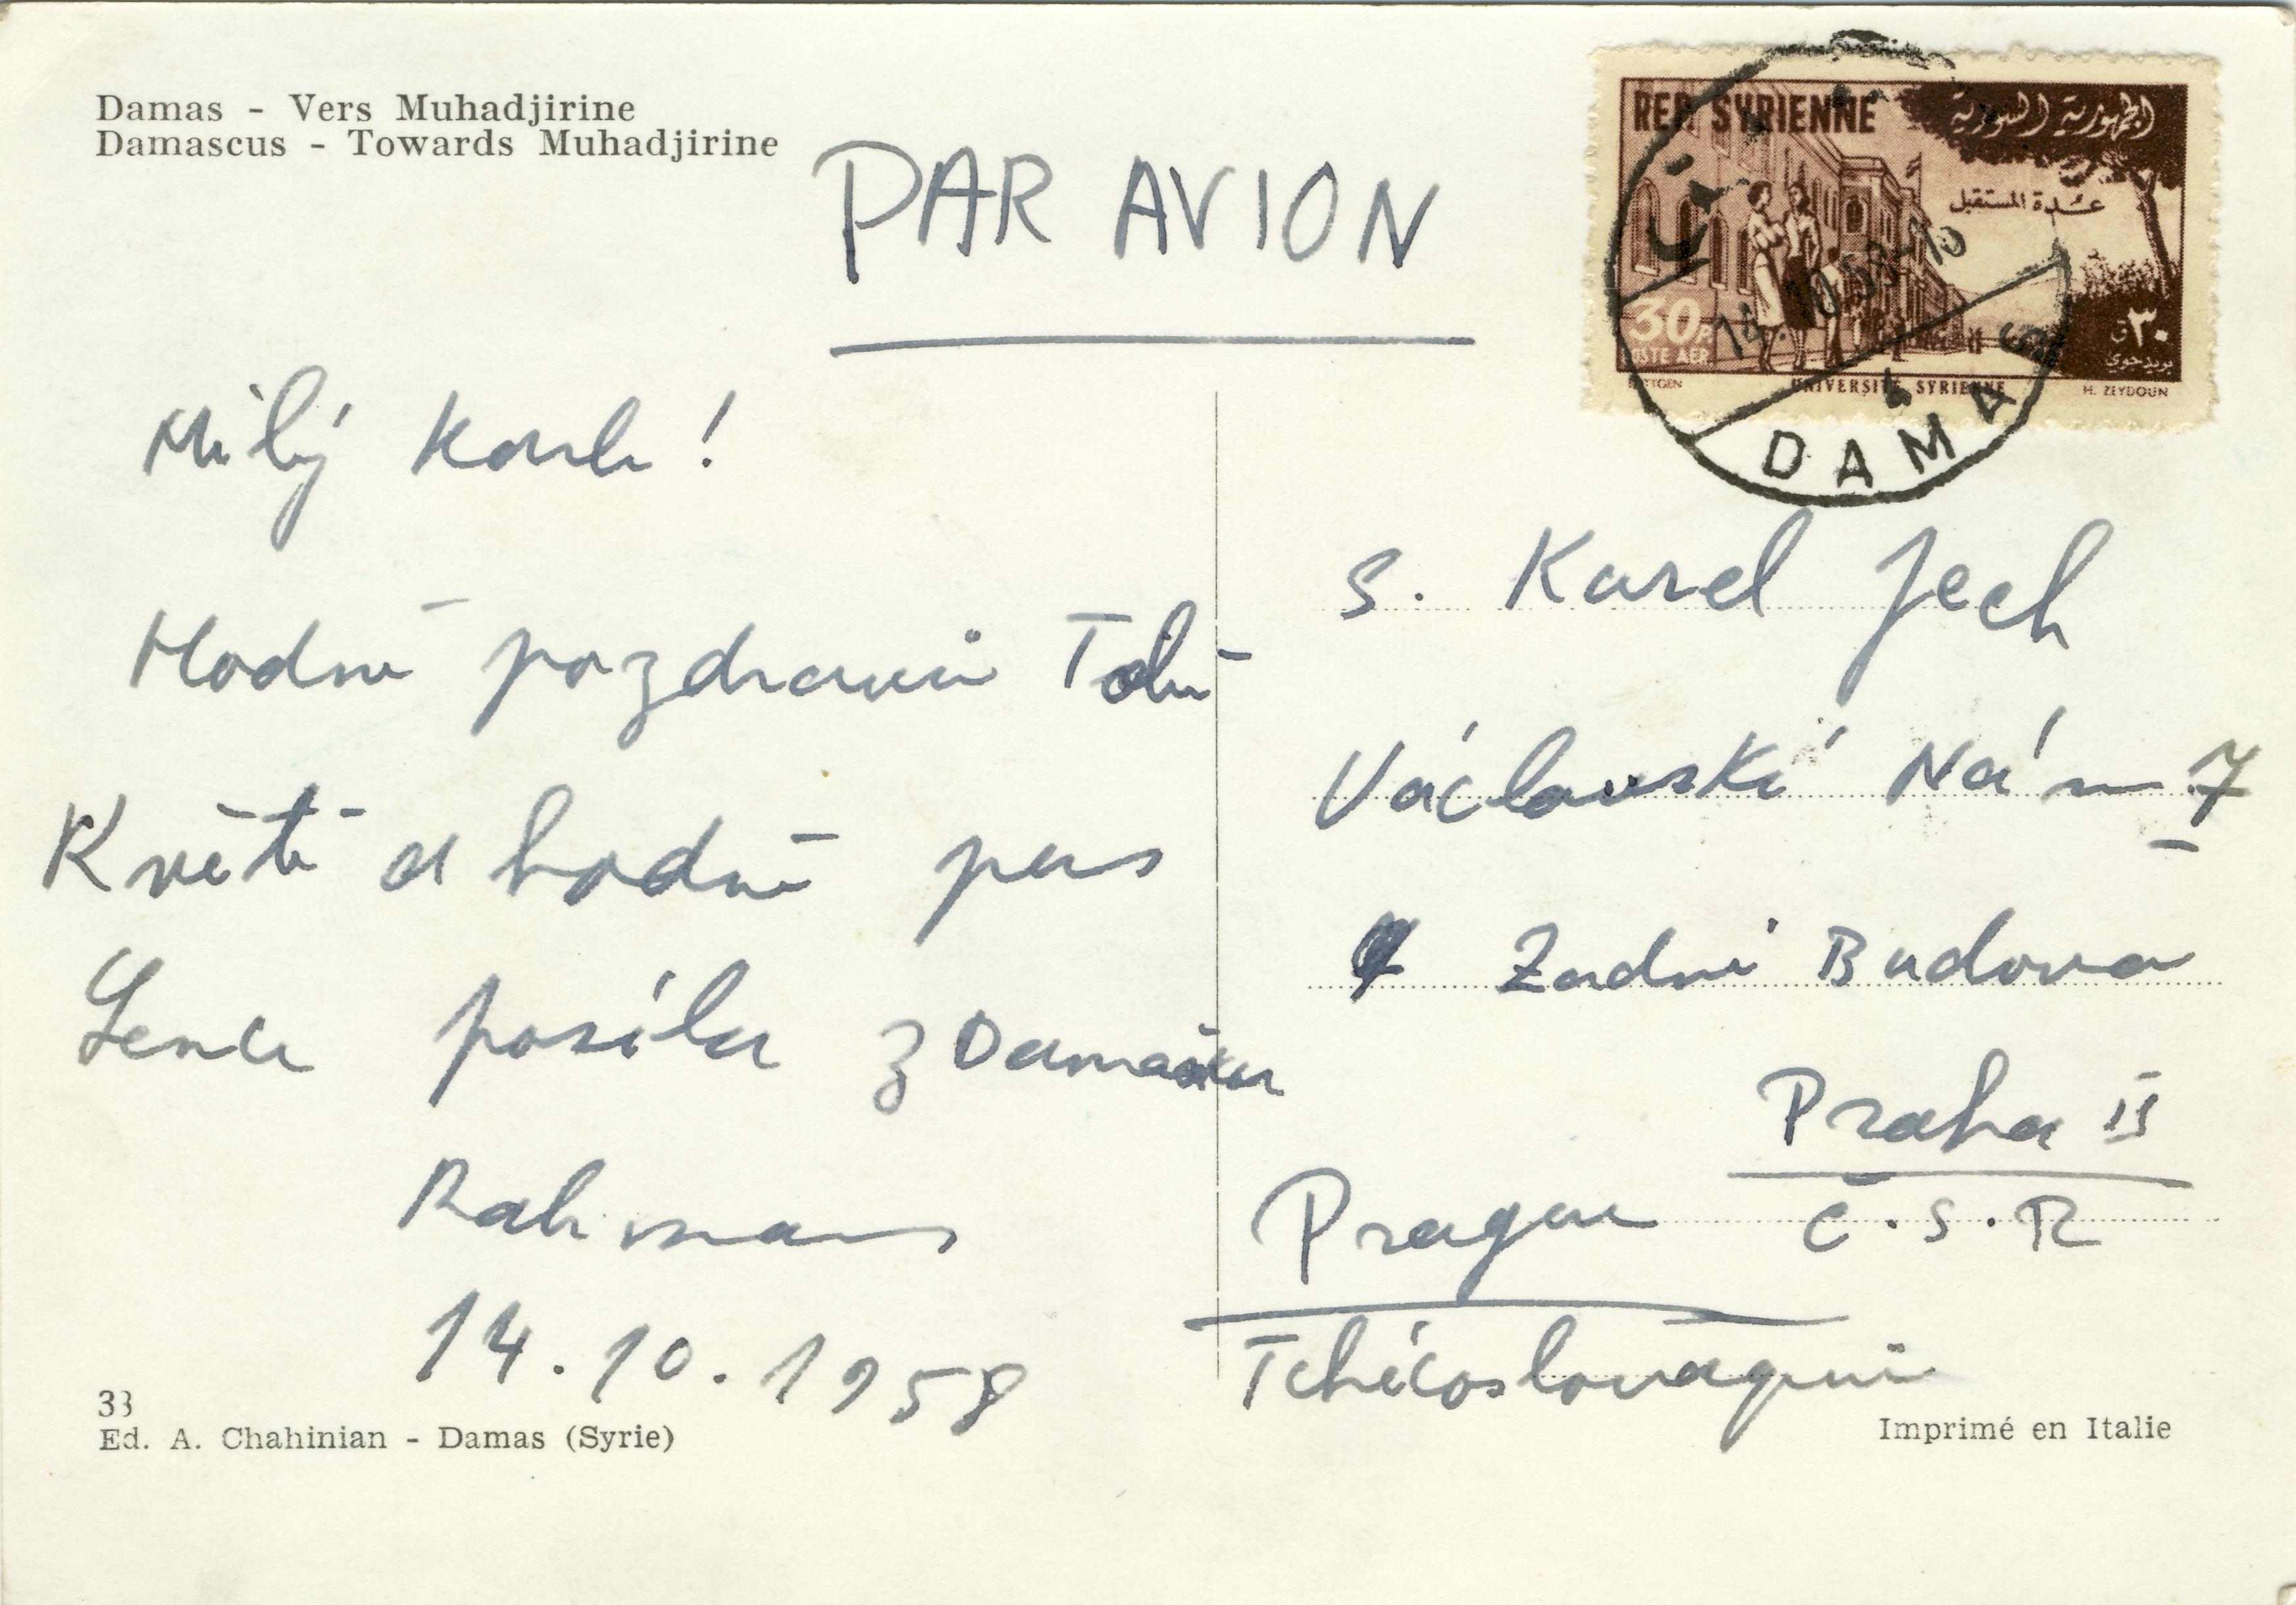 Damas - Vers Muhadjirine
Damascus - Towards Muhadjirine
PAR AVION
REP. SYRIENNE
الجمهورية السورية
عدة المستقبل
30 P.
POSTE AER.
٣٠ ق
بريد جوي
UNIVERSITÉ SYRIENNE
H. ZEYDOUN
14.10.58-10
4
DAMAS
Milý Karle!
Hodně pozdravů Tobě
Květě a hodně pus
Lence posílá z Damašku
Rahman
14.10.1958
s. Karel Jech
Václavské Nám 7
Zadní Budova
Praha II
Č.S.R
Prague
Tchécoslovaquie
33
Ed. A. Chahinian - Damas (Syrie)
Imprimé en Italie